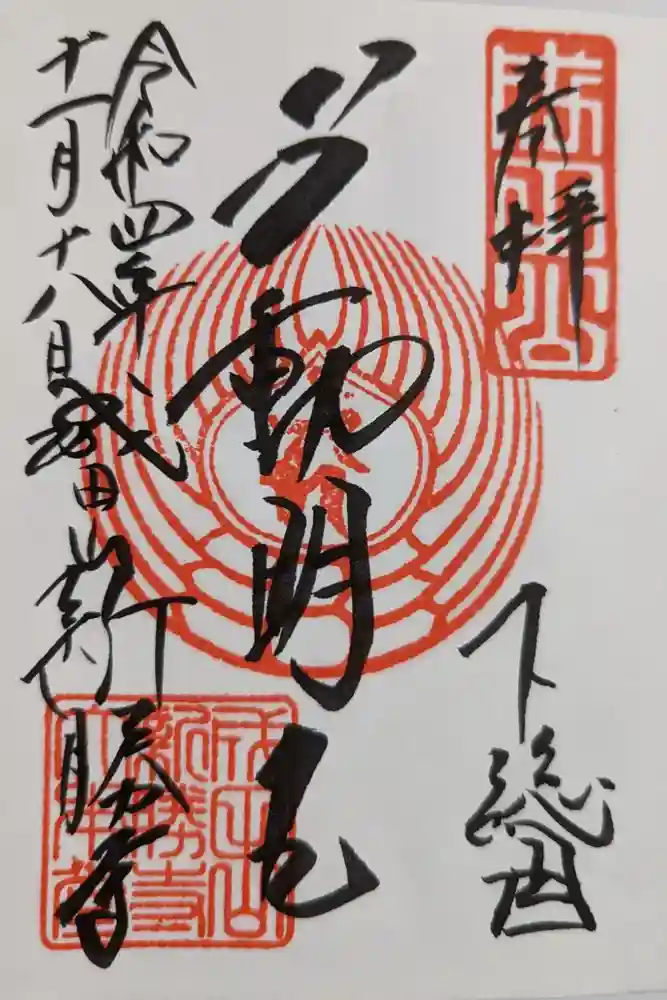 奉拝
成田山
下総国
不動明王
令和四年
十一月十八日
成田山新勝寺
成田山
新勝寺